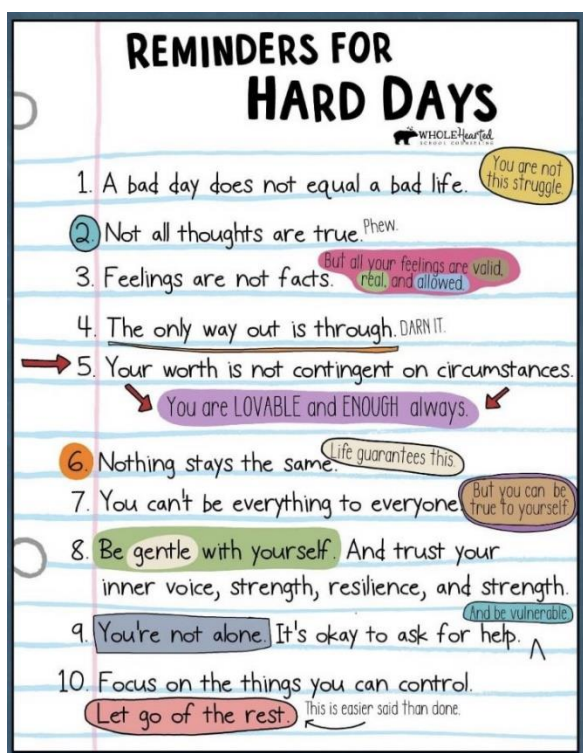 REMINDERS FOR
HARD DAYS
WHOLEHearted
SCHOOL COUNSELING
1. A bad day does not equal a bad life.
You are not
this struggle.
2. Not all thoughts are true. Phew.
3. Feelings are not facts.
But all your feelings are valid,
real, and allowed.
4. The only way out is through. DARN IT.
5. Your worth is not contingent on circumstances.
You are LOVABLE and ENOUGH always.
6. Nothing stays the same. Life guarantees this.
7. You can't be everything to everyone.
But you can be
true to yourself.
8. Be gentle with yourself. And trust your
inner voice, strength, resilience, and strength.
9. You're not alone. It's okay to ask for help.
And be vulnerable
10. Focus on the things you can control.
Let go of the rest. This is easier said than done.